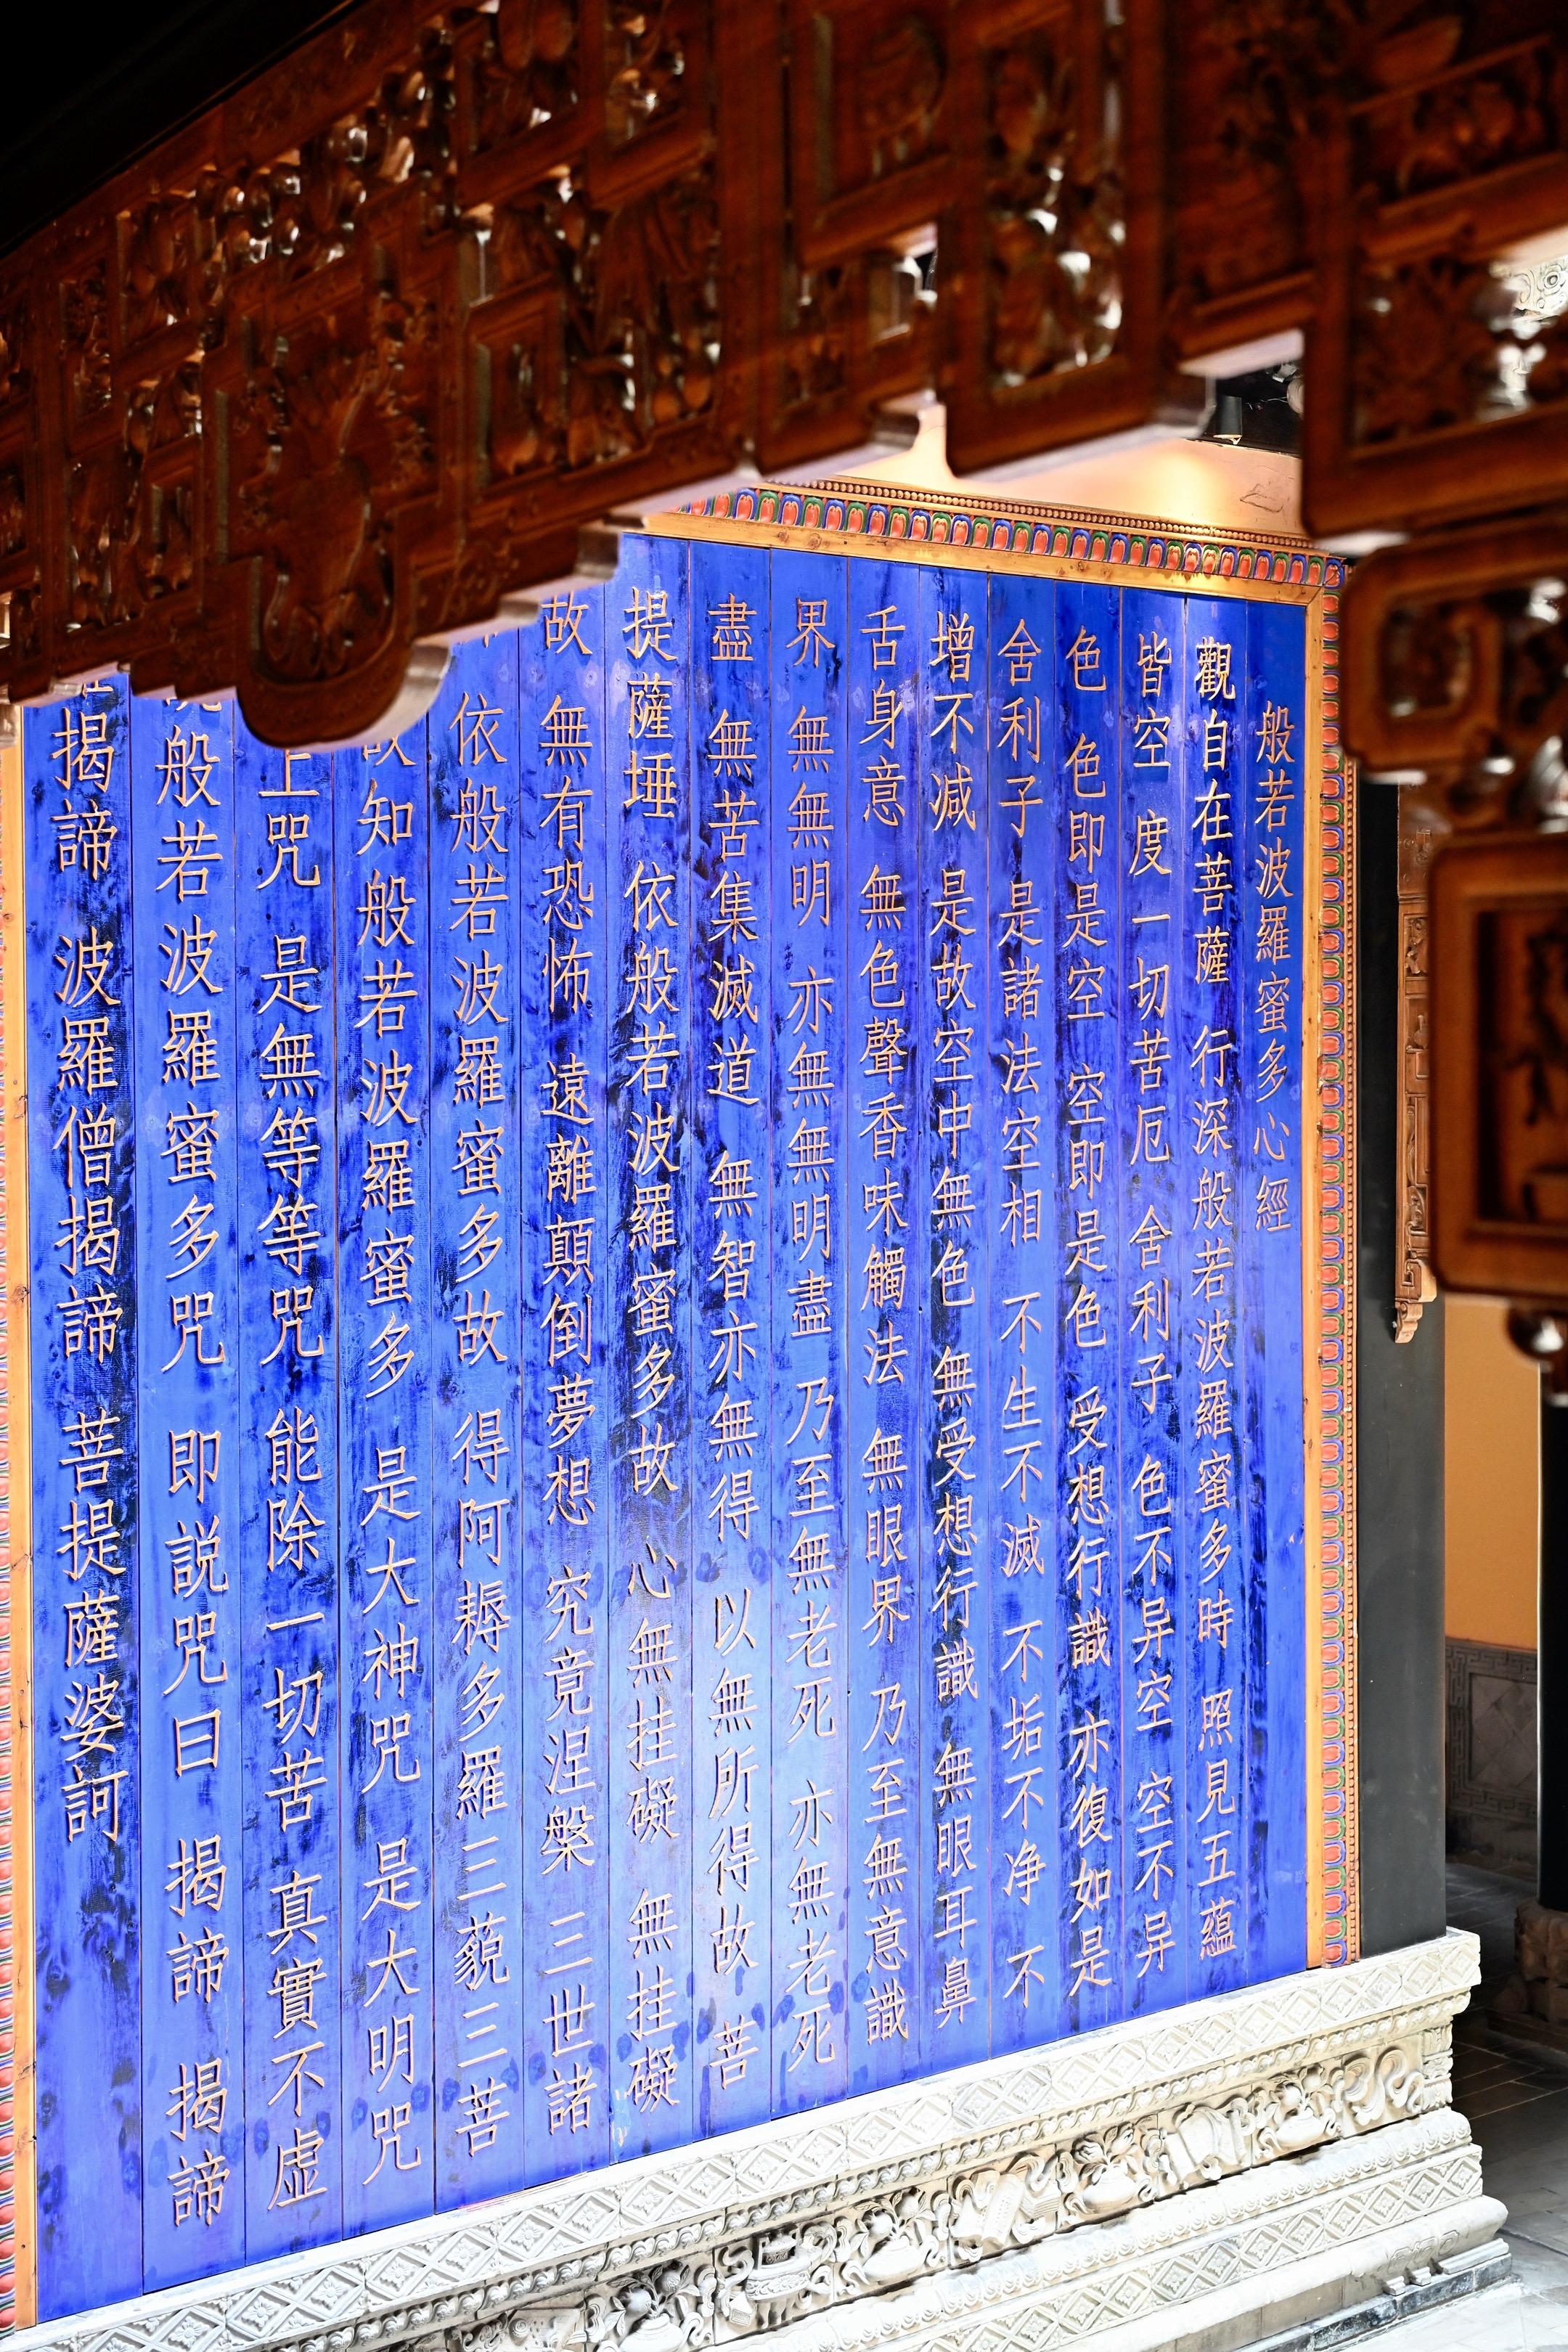 般若波羅蜜多心經
觀自在菩薩 行深般若波羅蜜多時 照見五蘊
皆空 度一切苦厄 舍利子 色不异空 空不异
色 色即是空 空即是色 受想行識 亦復如是
舍利子 是諸法空相 不生不滅 不垢不净 不
增不減 是故空中無色 無受想行識 無眼耳鼻
舌身意 無色聲香味觸法 無眼界 乃至無意識
界 無無明 亦無無明盡 乃至無老死 亦無老死
盡 無苦集滅道 無智亦無得 以無所得故 菩
提薩埵 依般若波羅蜜多故 心無挂礙 無挂礙
故 無有恐怖 遠離顛倒夢想 究竟涅槃 三世諸
依般若波羅蜜多故 得阿耨多羅三藐三菩
故知般若波羅蜜多 是大神咒 是大明咒
上咒 是無等等咒 能除一切苦 真實不虛
般若波羅蜜多咒 即説咒曰 揭諦 揭諦
揭諦 波羅僧揭諦 菩提薩婆訶